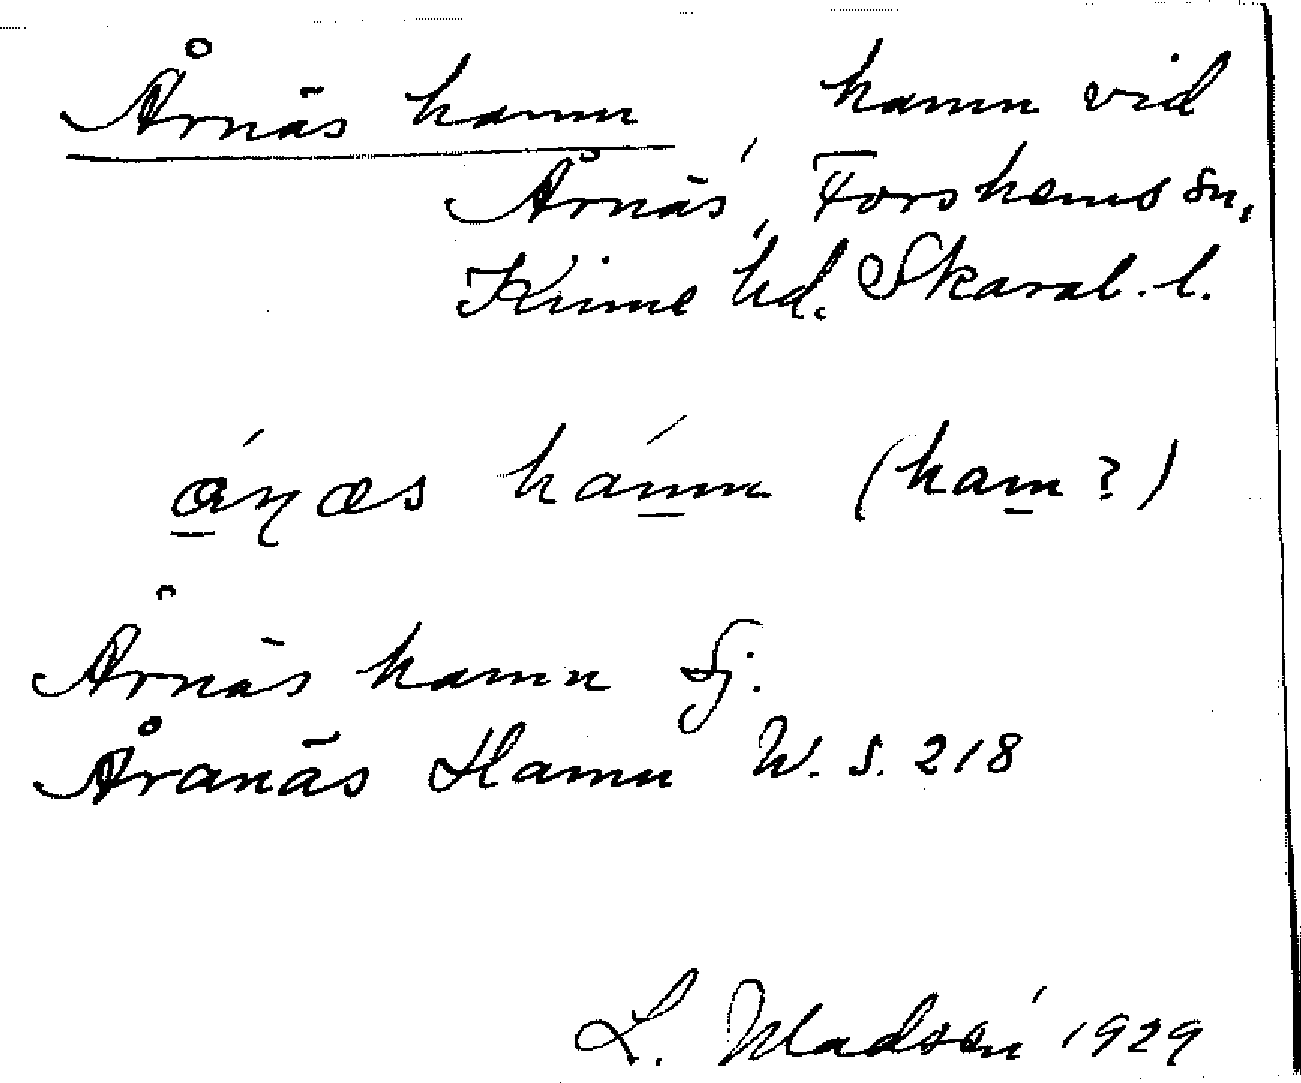 Årnäs hamn, hamn vid
Årnäs, Forshems sn,
Kinne hd. Skarab. l.
ánæs hámn (ham?)
Årnäs hamn Sj.
Åranäs Hamn W. S. 218
L. Madsén 1929